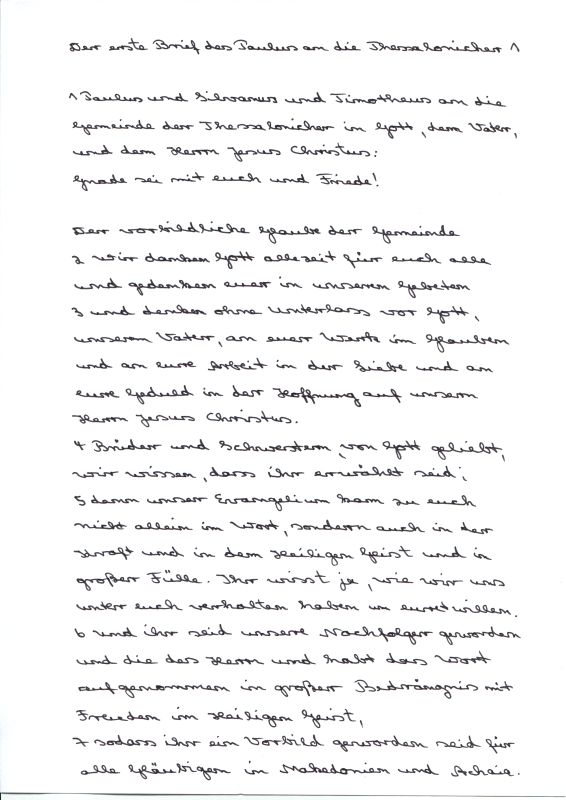 Der erste Brief des Paulus an die Thessalonicher 1
1 Paulus und Silvanus und Timotheus an die
Gemeinde der Thessalonicher in Gott, dem Vater,
und dem Herrn Jesus Christus:
Gnade sei mit euch und Friede!
Der vorbildliche Glaube der Gemeinde
2 wir danken Gott allezeit für euch alle
und gedenken euer in unserem Gebeten
3 und denken ohne Unterlass vor Gott,
unserem Vater, an euer Werk im Glauben
und an eure Arbeit in der Liebe und an
eure Geduld in der Hoffnung auf unsern
Herrn Jesus Christus.
4 Brüder und Schwestern, von Gott geliebt,
wir wissen, dass ihr erwählt seid;
5 denn unser Evangelium kam zu euch
nicht allein im Wort, sondern auch in der
Kraft und in dem Heiligen Geist und in
großer Fülle. Ihr wisst ja, wie wir uns
unter euch verhalten haben um euretwillen.
6 und ihr seid unsere Nachfolger geworden
und die des Herrn und habt das Wort
aufgenommen in großer Bedrängnis mit
Freuden im Heiligen Geist,
7 sodass ihr ein Vorbild geworden seid für
alle Gläubigen in Makedonien und Achaia.